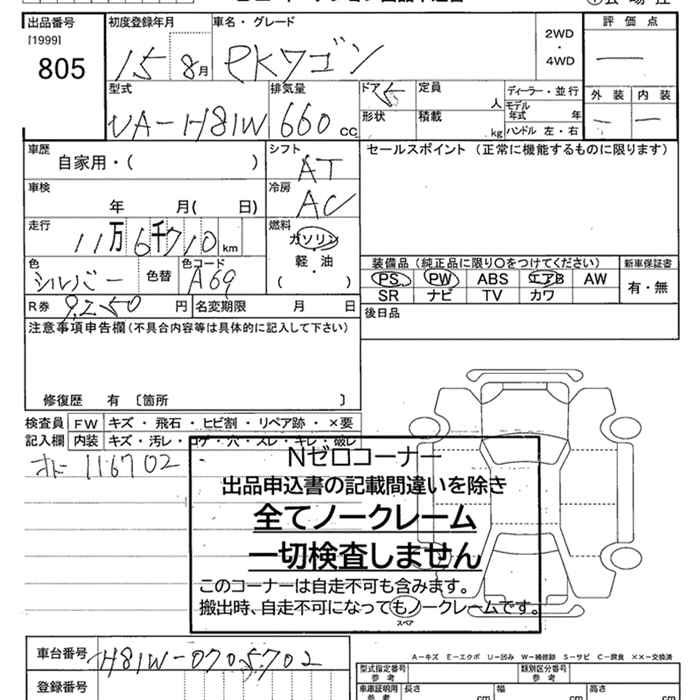 出品番号 初度登録年月 車名・グレード 評価点
[1999]
805 15 8月 ekワゴン 2WD・4WD —
型式 排気量 ドア 定員 人 ディーラー・並行 外装 内装
UA-H81W 660 CC 形状 積載 kg モデル年式 年 — —
ハンドル 左・右
車歴 シフト セールスポイント (正常に機能するものに限ります)
自家用・( ) AT
車検 冷房
年 月( 日) AC
走行 燃料
11万6千710km ガソリン
軽・油
( )
色 色コード 装備品 (純正品に限り〇をつけてください) 新車保証書
シルバー 色替 A69 PS PW ABS エアB AW 有・無
SR ナビ TV カワ
R券 9,250円 名変期限 月 日 後日品
注意事項申告欄 (不具合内容等は具体的に記入して下さい)
修復歴 有 〔箇所 〕
検査員 FW キズ・飛石・ヒビ割・リペア跡・×要
記入欄 内装 キズ・汚レ・コゲ・穴・スレ・キレ・破レ
116702
Nゼロコーナー
出品申込書の記載間違いを除き
全てノークレーム
一切検査しません
このコーナーは自走不可も含みます。
搬出時、自走不可になってもノークレームです。
スペア
A－キズ E－エクボ U－凹み W－補修跡 S－サビ C－腐食 ××－交換済
車台番号 H81W-0705702
型式指定番号 参考 類別区分番号 参考
登録番号 車庫証明用 参考 長さ cm 幅 cm 高さ cm